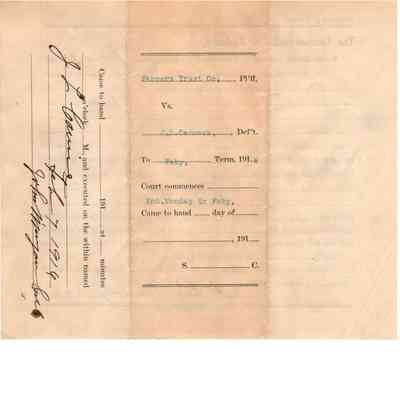 Farmers Trust Co, Pl'ff,
Vs.
Def't.
To Feby, Term, 191
Court commences
2nd. Monday in Feby,
Came to hand day of
, 191
S. C.
Came to hand 191 at minutes
o'clock M., and executed on the within named
J L
Feb 7 1914
John